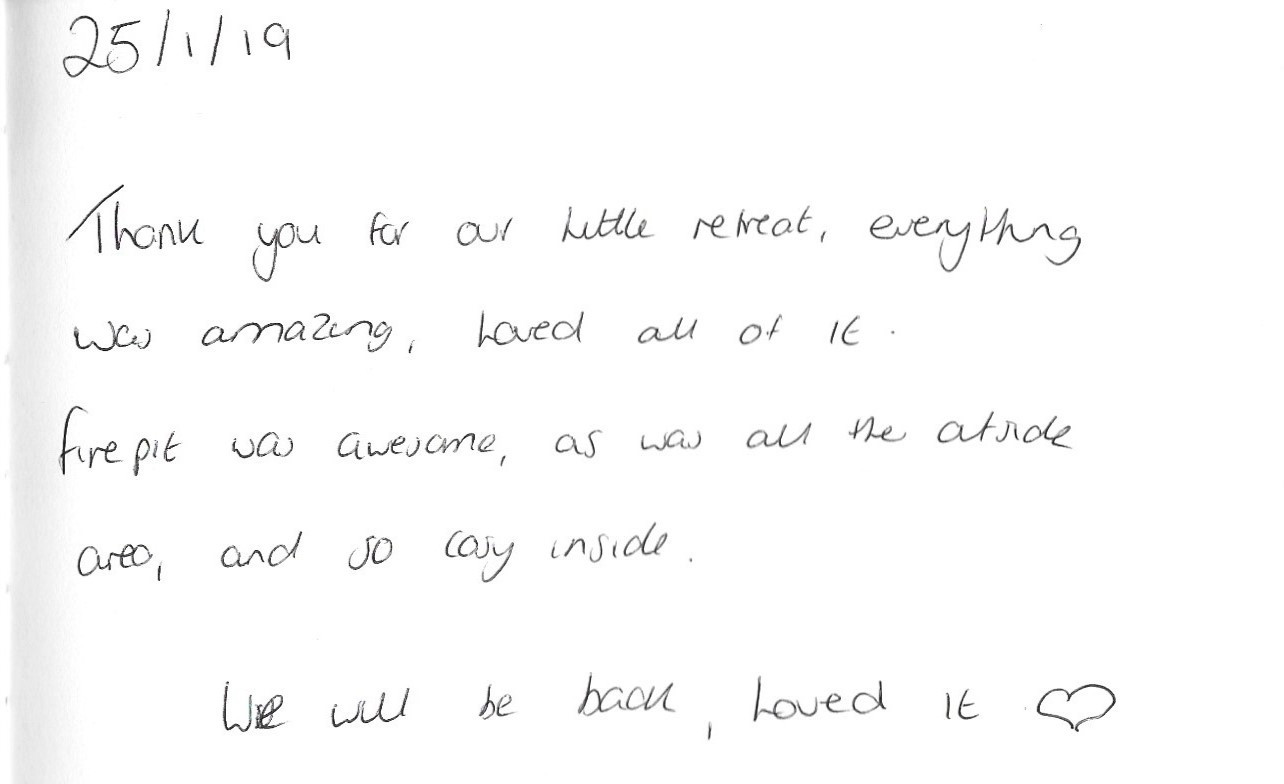 25/1/19
Thank you for our little retreat, everything
was amazing, Loved all of it.
fire pit was awesome, as was all the outside
area, and so cosy inside.
We will be back, Loved it ♡